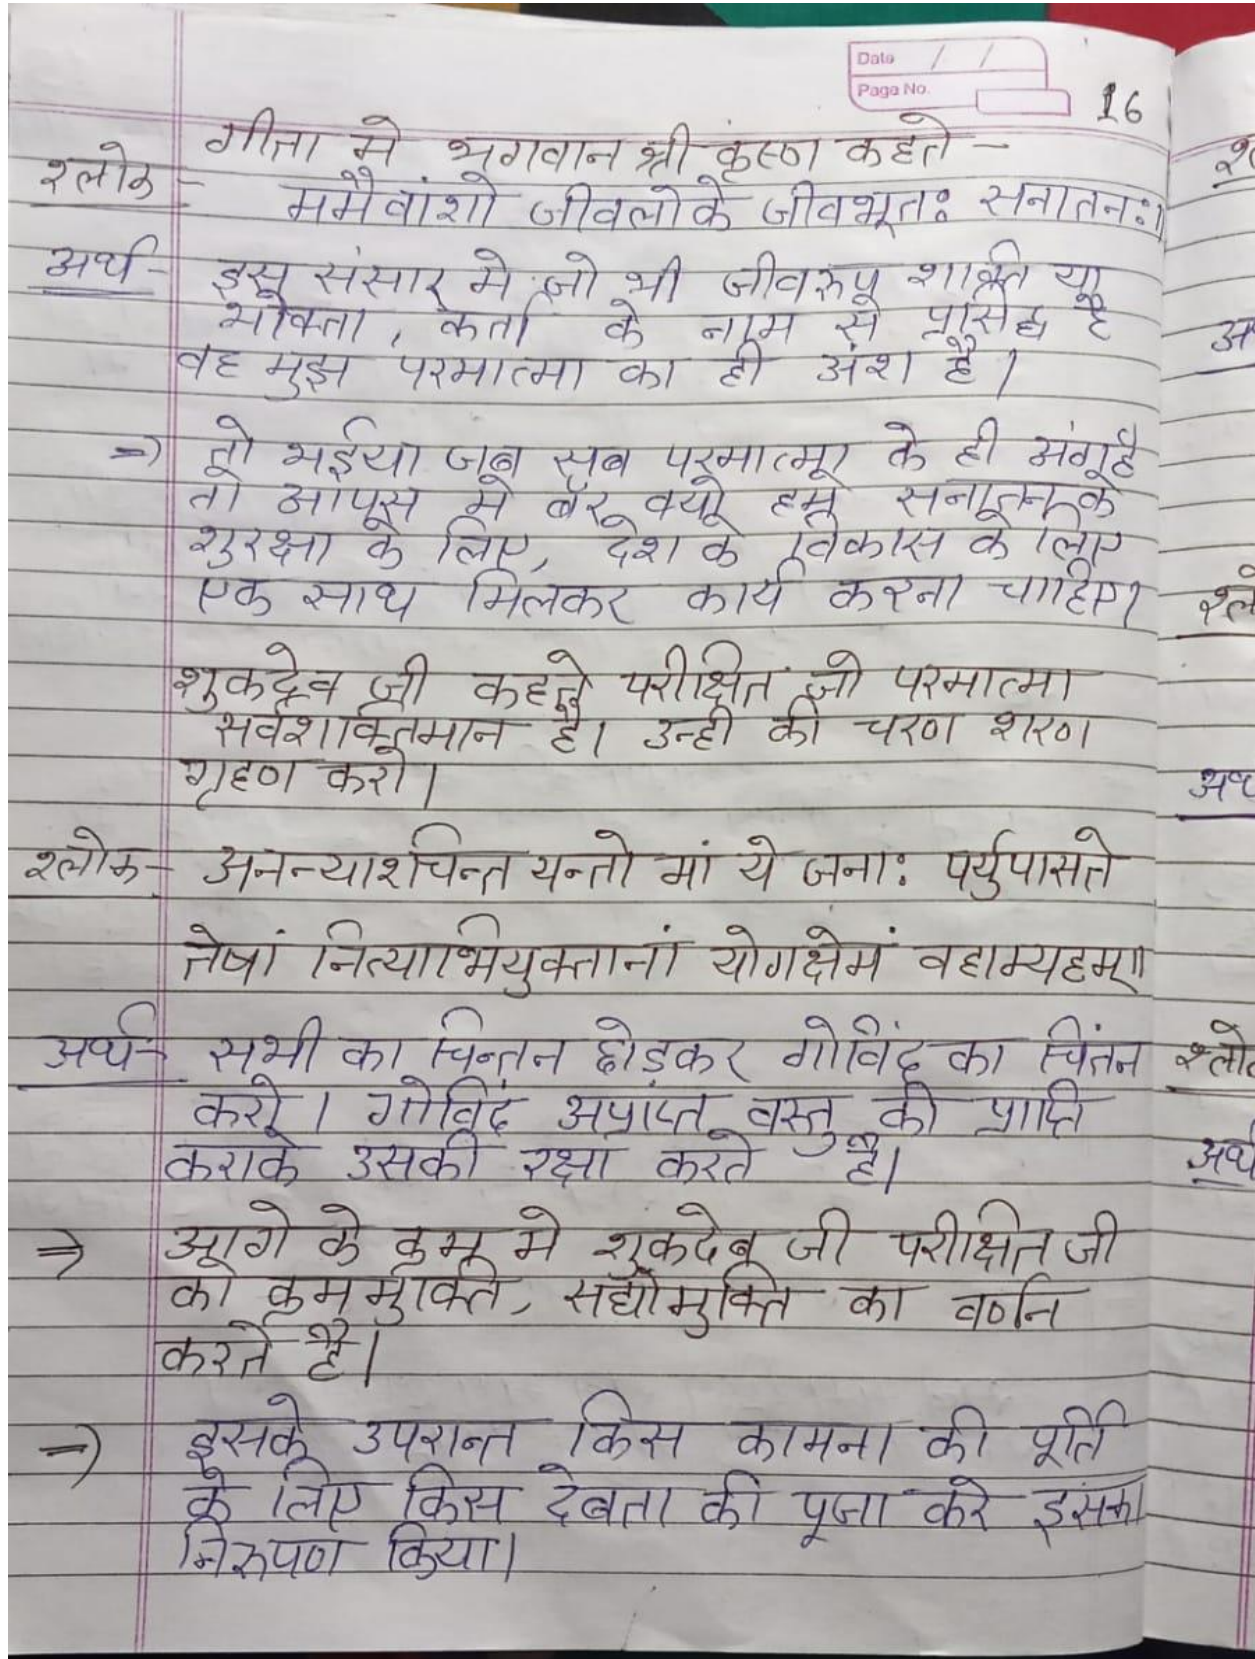 Date / /
Page No.
16
गीता मे भगवान श्री कृष्ण कहते -
श्लोक - ममैवांशो जीवलोके जीवभूतः सनातनः।
अर्थ - इस संसार मे जो भी जीवरुप शक्ति या
भोक्ता, कर्ता के नाम से प्रसिद्ध है
वह मुझ परमात्मा का ही अंश है।
=) तो भईया जब सब परमात्मा के ही अंग है
तो आपस मे बैर क्यो हमे सनातन के
सुरक्षा के लिए, देश के विकास के लिए
एक साथ मिलकर कार्य करना चाहिए।
शुकदेव जी कहते परीक्षित जो परमात्मा
सर्वशक्तिमान है। उन्ही की चरण शरण
गृहण करो।
श्लोक - अनन्याश्चिन्तयन्तो मां ये जनाः पर्युपासते
तेषां नित्याभियुक्तानां योगक्षेमं वहाम्यहम्॥
अर्थ - सभी का चिन्तन छोडकर गोविंद का चिंतन
करो। गोविंद अप्राप्त वस्तु की प्राप्ति
कराके उसकी रक्षा करते है।
=> आगे के क्रम मे शुकदेव जी परीक्षित जी
को क्रममुक्ति, सद्योमुक्ति का वर्णन
करते है।
=) इसके उपरान्त किस कामना की पूर्ति
के लिए किस देवता की पूजा करे इसका
निरुपण किया।